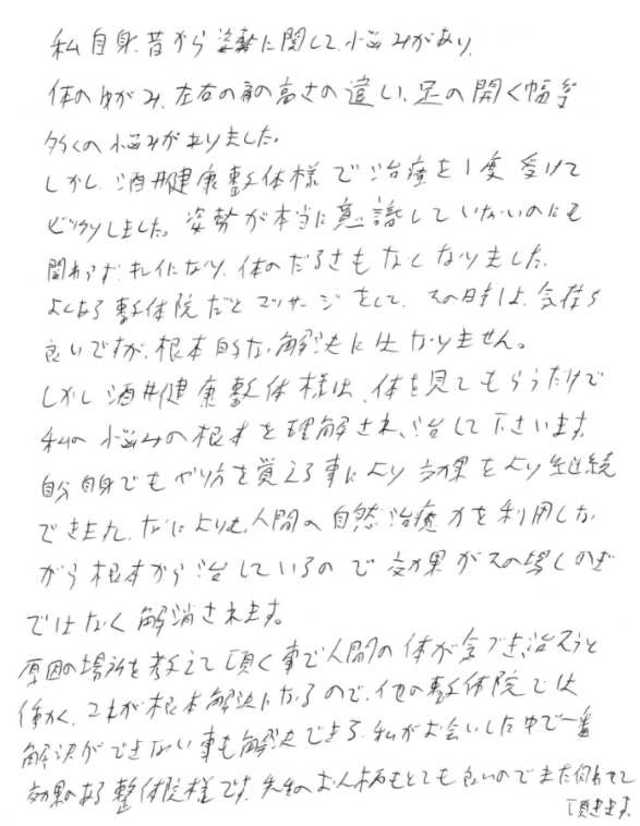 私自身、昔から姿勢に関して、小悩みがあり、
体のゆがみ、左右の肩の高さの違い、足の開く幅等
多くの小悩みがありました。
しかし、酒井健康整体様で治療を1度受けて
ビックリしました。姿勢が本当に意識していないのにも
関わらず、キレイになり、体のだるさもなくなりました。
よくある整体院だとマッサージをして、その時は、気持ち
良いですが、根本的な解決にはなりません。
しかし酒井健康整体様は、体を見てもらうだけで
私の小悩みの根本を理解され、治して下さいます。
自分自身でもやり方を覚える事により効果をより継続
できました。なによりも、人間の自然治癒力を利用しな
がら根本から治しているので効果がその場しのぎ
ではなく解消されます。
原因の場所を教えて頂く事で人間の体が気づき、治そうと
働く、これが根本解決になるので、他の整体院では
解決ができない事も解決できる、私がお会いした中で一番
効果のある整体院様です。先生のお人柄もとても良いのでまた伺わせて
頂きます。